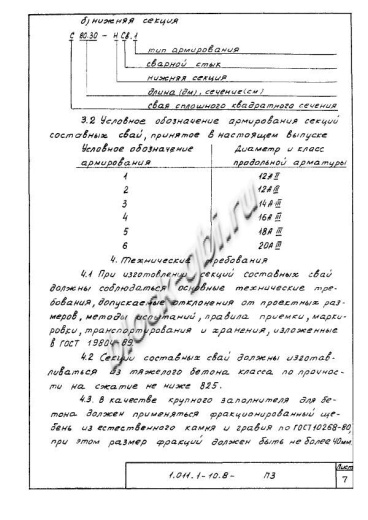 б) нижняя секция
С 80.30 - Н СВ. 1
тип армирования
сварной стык
нижняя секция
длина (дм), сечение (см)
свая сплошного квадратного сечения
3.2 Условное обозначение армирования секций
составных свай, принятое в настоящем выпуске
Условное обозначение Диаметр и класс
армирования продольной арматуры
1 12АII
2 12АIII
3 14АIII
4 16АIII
5 18АIII
6 20АIII
4. Технические требования
4.1 При изготовлении секций составных свай
должны соблюдаться основные технические тре-
бования, допускаемые отклонения от проектных раз-
меров, методы испытаний, правила приемки, марки-
ровки, транспортирования и хранения, изложенные
в ГОСТ 19804-89.
4.2 Секции составных свай должны изготав-
ливаться из тяжелого бетона класса по прочнос-
ти на сжатие не ниже В25.
4.3. В качестве крупного заполнителя для бе-
тона должен применяться фракционированный ще-
бень из естественного камня и гравия по ГОСТ 10268-80,
при этом размер фракций должен быть не более 40мм.
1.011.1-10.8- ПЗ
Лист
7
block-gbi.ru